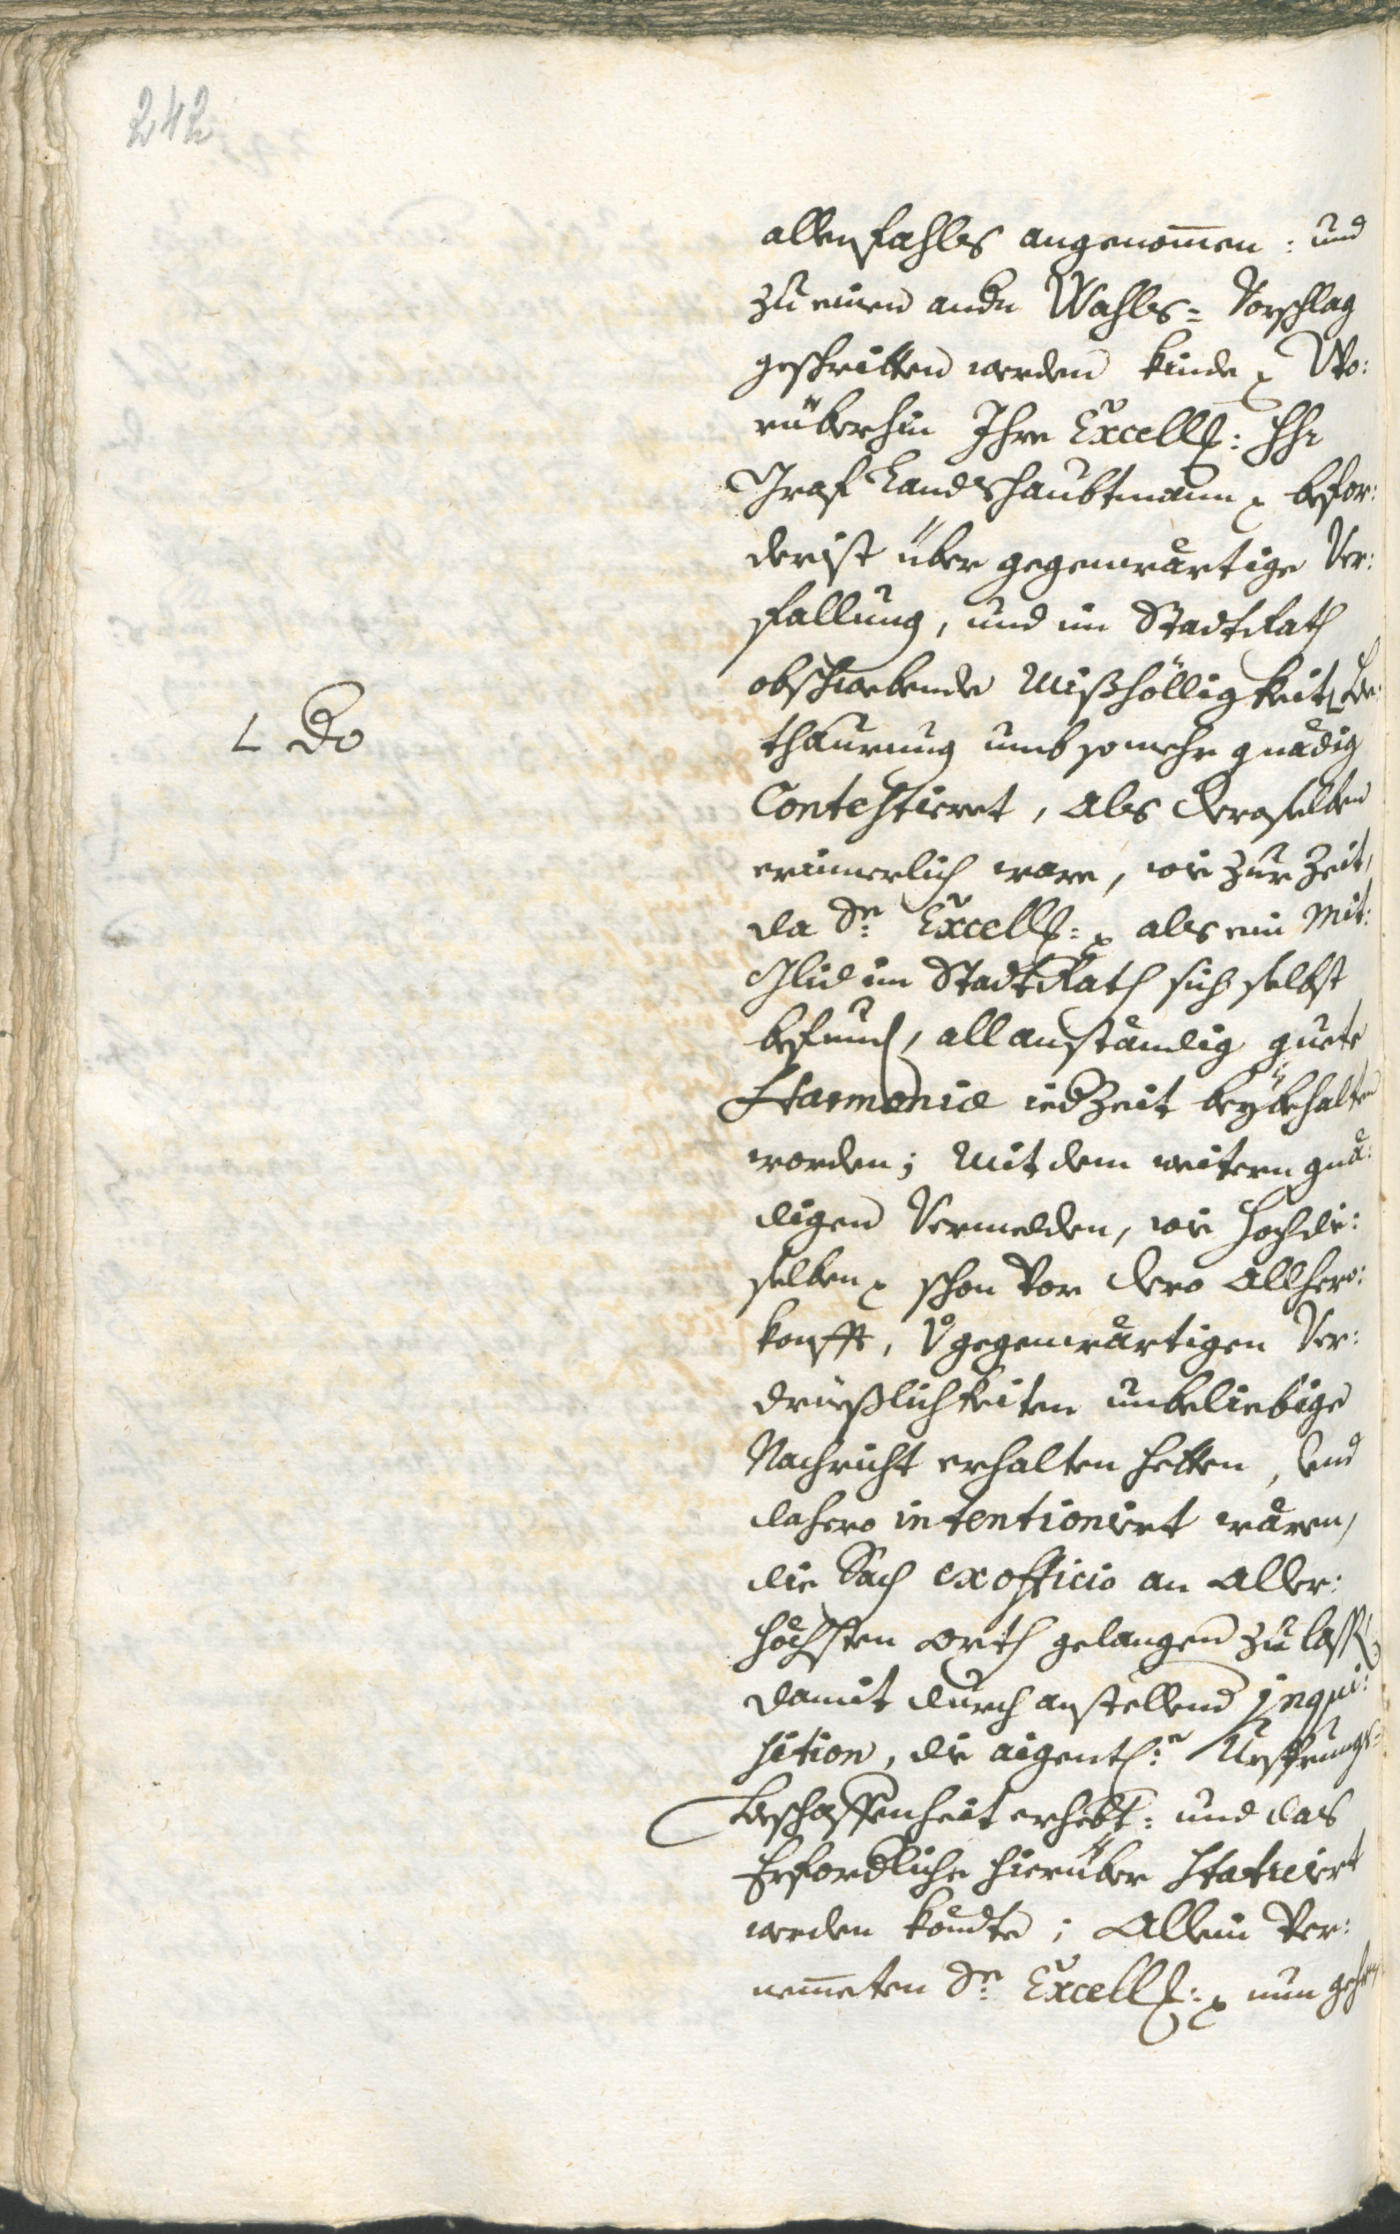 242
allenfahls angenom̄en: und
zu einen andn Wahls= Vorschlag
geschritten werden kinde, Wo:
rüberhin Ihre Excell: Hr
Graf Landshaubtmann, befor:
derist über gegenwärtige Ver:
fallung, und im Stadt Rath
obschwebende Mißhölligkeit, Be:
∟ Do
thaurung umb so mehr gnädig
Contestieret, als deroselben
erinnerlich ware, wie zur Zeit,
da Sr: Excell: als ein Mit:
Glid im Stadt Rath sich selbst
befund, all anständig guete
Harmonie iedZeit beybehalten
worden; Mit dem weitern gnä:
digen Vermelden, wie hochdie:
selben, schon vor dero Allhero:
konfft, v gegenwärtigen Ver:
drüeßlichkeiten unbeliebige
Nachricht erhalten hetten, und
dahero intentioniert wären,
die Sach ex officio an Aller:
höchsten Orth gelangen zu lassen,
damit durch anstellend inqui:
sition, die aigentl:e Ursprungs=
beschaffenheit erhebt: und das
Erfordliche hierüber statuiert
werden köndte; Allein Ver:
nem̄eten Sr: Excell: nun